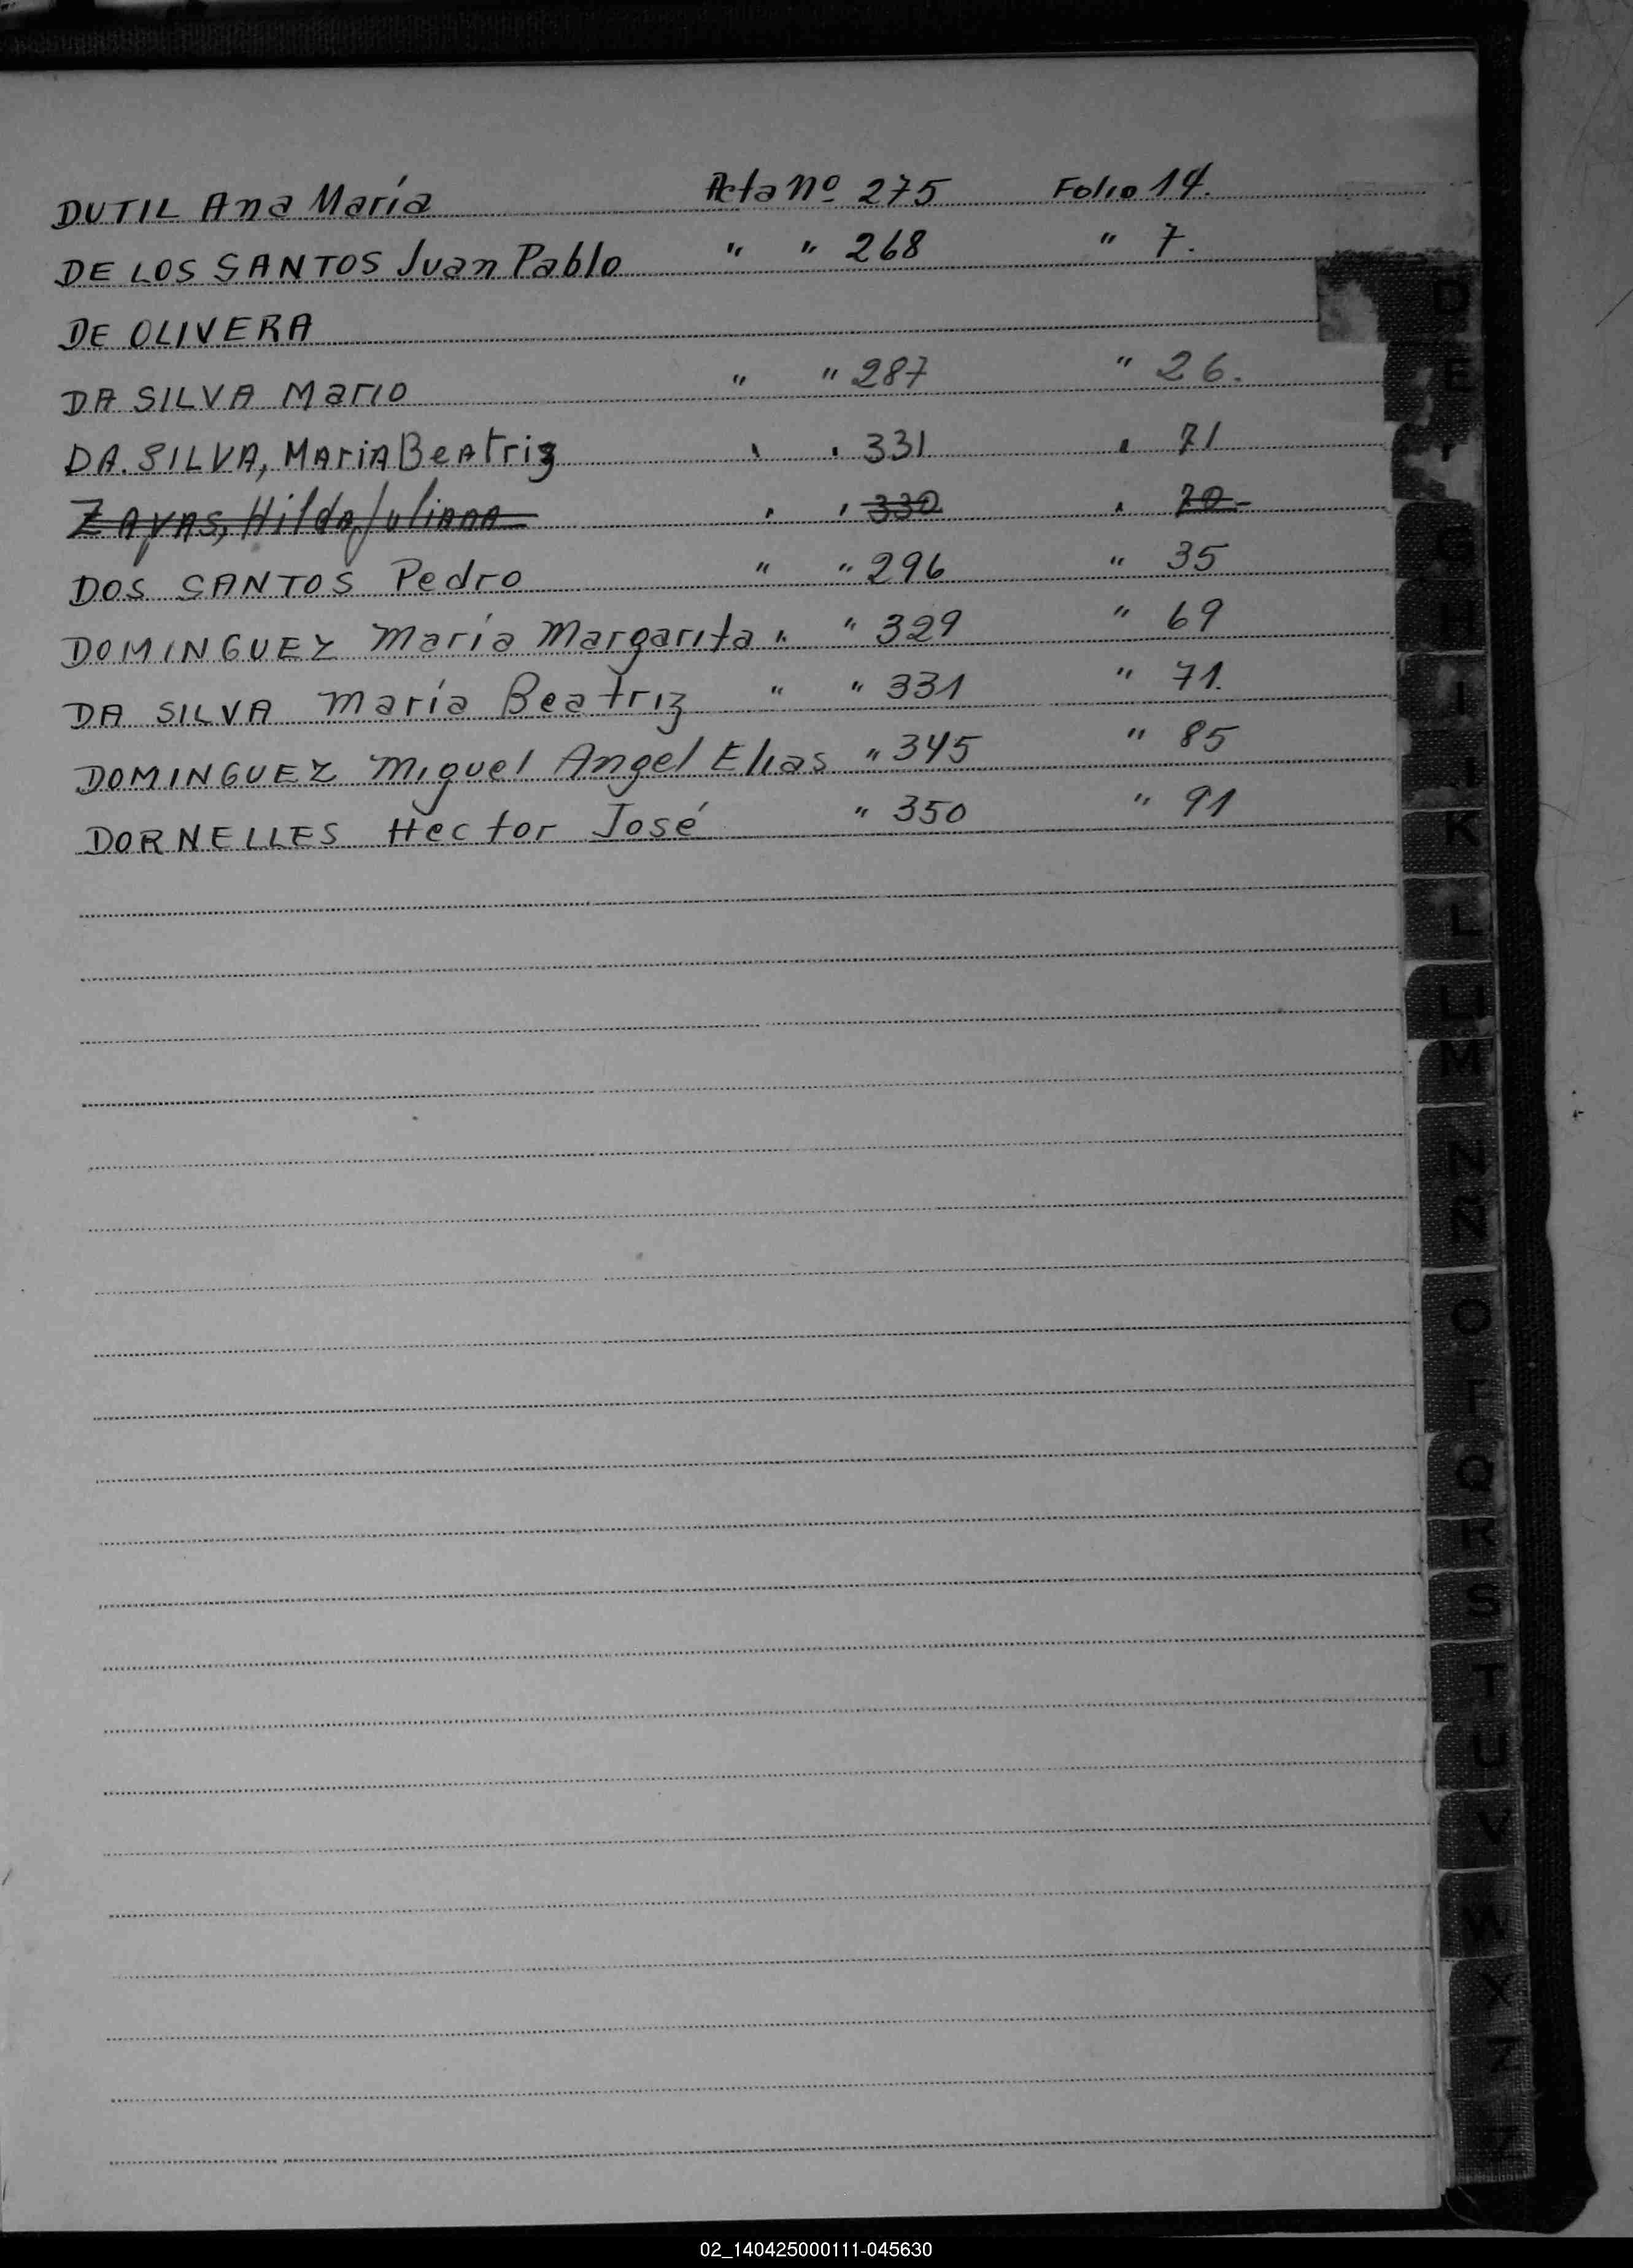 DUTIL Ana María Acta nº 275 Folio 14.
DE LOS SANTOS Juan Pablo " " 268 " 7.
DE OLIVERA
DA SILVA Mario " " 287 " 26.
DA SILVA, MARIA BEATRIZ " " 331 " 71
ZAYAS, Hilda Juliana " " 330 " 70-
DOS SANTOS Pedro " " 296 " 35
DOMINGUEZ María Margarita " " 329 " 69
DA SILVA María Beatriz " " 331 " 71.
DOMINGUEZ Miguel Angel Elias " 345 " 85
DORNELLES Hector José " 350 " 91
D
E
H
I
K
L
M
N
Ñ
O
Q
R
S
T
U
V
W
X
Z
02_140425000111-045630